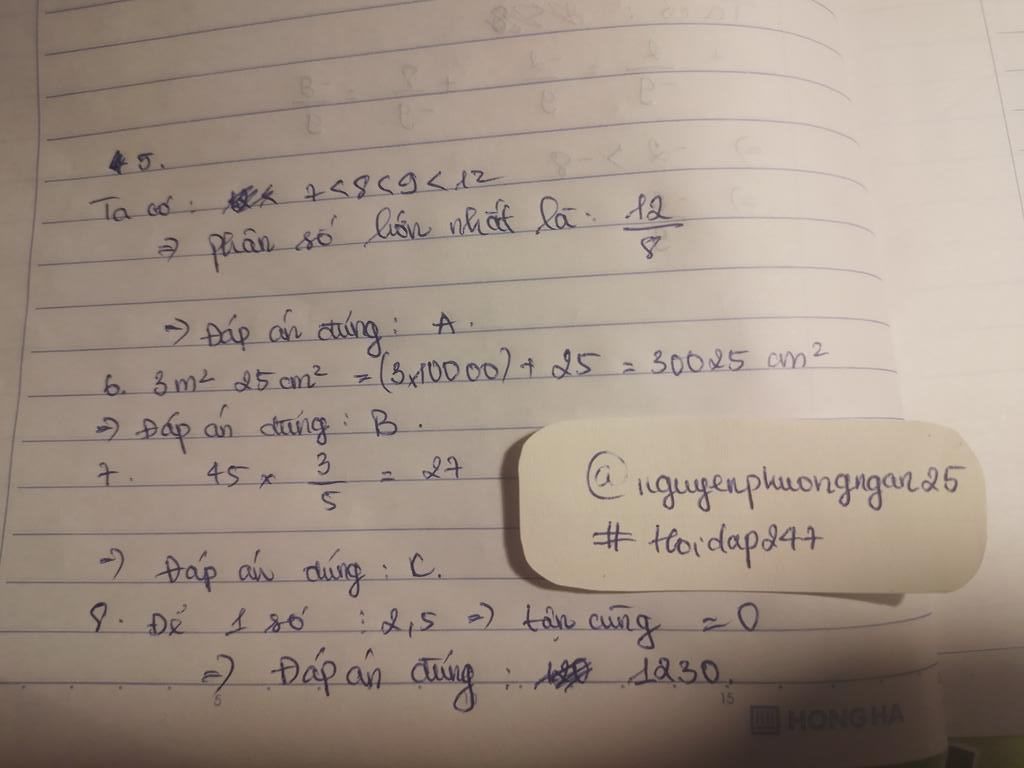 5.
Ta có: 7 < 8 < 9 < 12
⇒ phân số lớn nhất là: 12/8
⇒ Đáp án đúng: A.
6. 3m² 25cm² = (3x10000) + 25 = 30025 cm²
⇒ Đáp án đúng: B.
7. 45 x 3/5 = 27
⇒ Đáp án đúng: C.
8. Để 1 số : 2,5 ⇒ tận cùng = 0
⇒ Đáp án đúng: 1230.
@nguyenphuongngan25
# Hoidap247
5 15
HONG HA